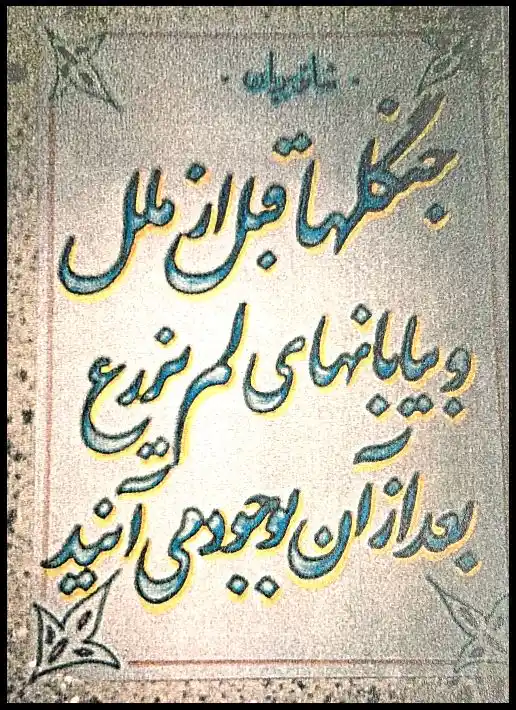 . شاتوبریان .
جنگلها قبل از ملل
و بیابانهای لم یزرع
بعد از آن بوجود می آیند